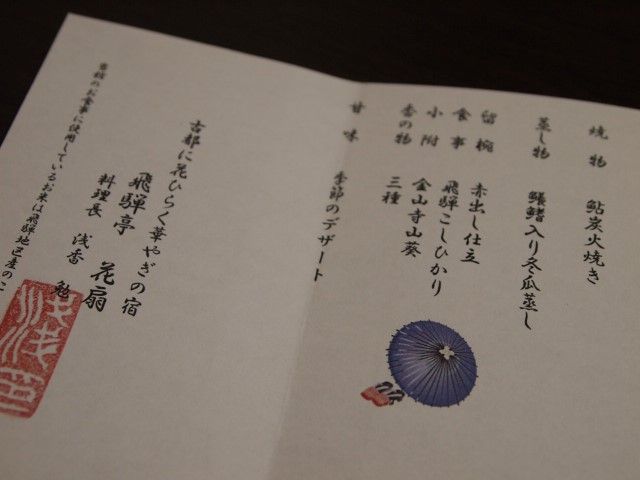 焼物 鮎炭火焼き
蒸し物 鱶鰭入り冬瓜蒸し
留椀 赤出し仕立
食事 飛騨こしひかり
小附 金山寺山葵
香の物 三種
甘味 季節のデザート
古都に花ひらく華やぎの宿
飛騨亭 花扇
料理長 浅香 勉
当館のお食事に使用しているお米は飛騨地区産のこ